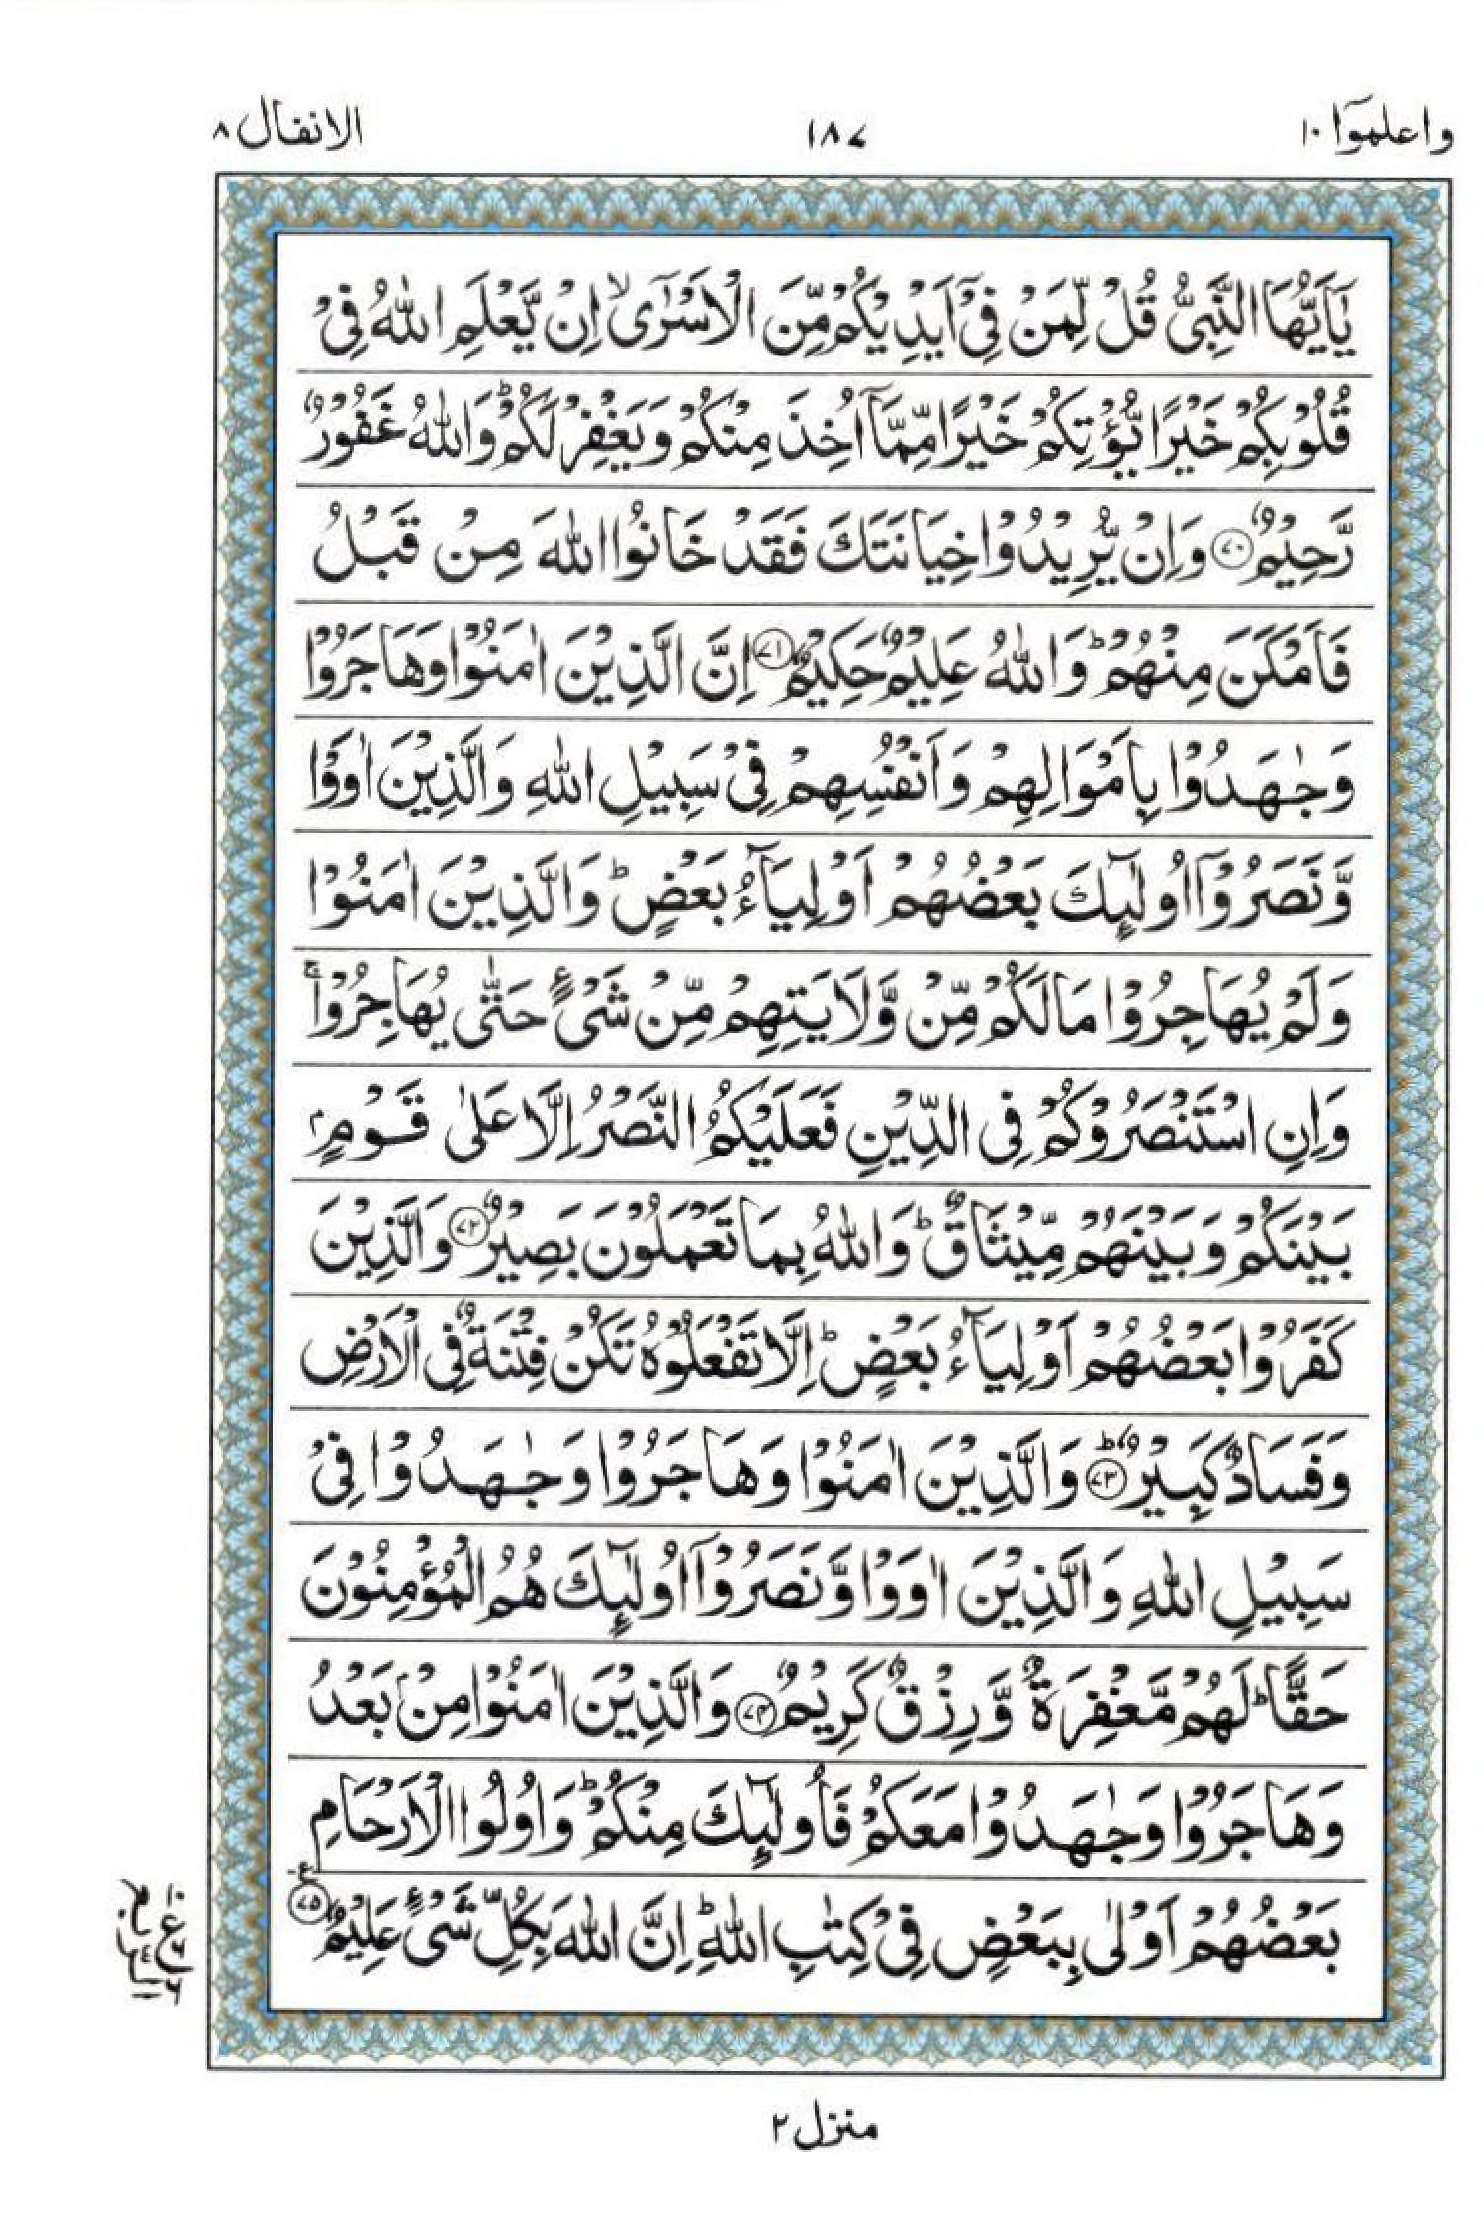 واعلموٓا ١٠
١٨٧
الانفال ٨
يٰۤاَيُّهَا النَّبِىُّ قُلْ لِّمَنْ فِىْۤ اَيْدِيْكُمْ مِّنَ الْاَسْرٰٓىۙ اِنْ يَّعْلَمِ اللّٰهُ فِىْ
قُلُوْبِكُمْ خَيْرًا يُّؤْتِكُمْ خَيْرًا مِّمَّاۤ اُخِذَ مِنْكُمْ وَيَغْفِرْ لَكُمْؕ وَاللّٰهُ غَفُوْرٌ
رَّحِيْمٌ ٧٠ وَاِنْ يُّرِيْدُوْا خِيَانَتَكَ فَقَدْ خَانُوا اللّٰهَ مِنْ قَبْلُ
فَاَمْكَنَ مِنْهُمْؕ وَاللّٰهُ عَلِيْمٌ حَكِيْمٌ ٧١ اِنَّ الَّذِيْنَ اٰمَنُوْا وَهَاجَرُوْا
وَجٰهَدُوْا بِاَمْوَالِهِمْ وَاَنْفُسِهِمْ فِىْ سَبِيْلِ اللّٰهِ وَالَّذِيْنَ اٰوَوْا
وَّنَصَرُوْۤا اُولٰٓئِكَ بَعْضُهُمْ اَوْلِيَآءُ بَعْضٍؕ وَالَّذِيْنَ اٰمَنُوْا
وَلَمْ يُهَاجِرُوْا مَا لَكُمْ مِّنْ وَّلَايَتِهِمْ مِّنْ شَىْءٍ حَتّٰى يُهَاجِرُوْاۚ
وَاِنِ اسْتَنْصَرُوْكُمْ فِى الدِّيْنِ فَعَلَيْكُمُ النَّصْرُ اِلَّا عَلٰى قَوْمٍۢ
بَيْنَكُمْ وَبَيْنَهُمْ مِّيْثَاقٌؕ وَاللّٰهُ بِمَا تَعْمَلُوْنَ بَصِيْرٌ ٧٢ وَالَّذِيْنَ
كَفَرُوْا بَعْضُهُمْ اَوْلِيَآءُ بَعْضٍؕ اِلَّا تَفْعَلُوْهُ تَكُنْ فِتْنَةٌ فِى الْاَرْضِ
وَفَسَادٌ كَبِيْرٌؕ ٧٣ وَالَّذِيْنَ اٰمَنُوْا وَهَاجَرُوْا وَجٰهَدُوْا فِىْ
سَبِيْلِ اللّٰهِ وَالَّذِيْنَ اٰوَوْا وَّنَصَرُوْۤا اُولٰٓئِكَ هُمُ الْمُؤْمِنُوْنَ
حَقًّاؕ لَهُمْ مَّغْفِرَةٌ وَّرِزْقٌ كَرِيْمٌ ٧٤ وَالَّذِيْنَ اٰمَنُوْا مِنْۢ بَعْدُ
وَهَاجَرُوْا وَجٰهَدُوْا مَعَكُمْ فَاُولٰٓئِكَ مِنْكُمْؕ وَاُولُوا الْاَرْحَامِ
بَعْضُهُمْ اَوْلٰى بِبَعْضٍ فِىْ كِتٰبِ اللّٰهِؕ اِنَّ اللّٰهَ بِكُلِّ شَىْءٍ عَلِيْمٌ ٧٥
١٠
ع
٦
٦
منزل ٢